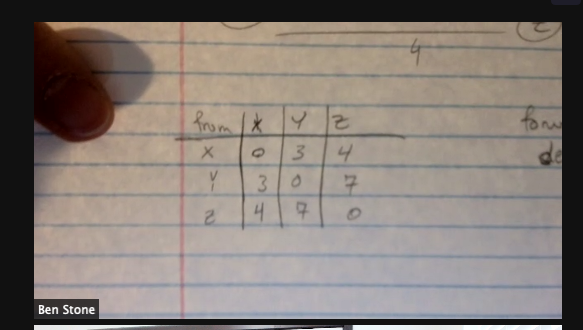 4
from X Y Z
X 0 3 4
Y 3 0 7
Z 4 7 0
Ben Stone